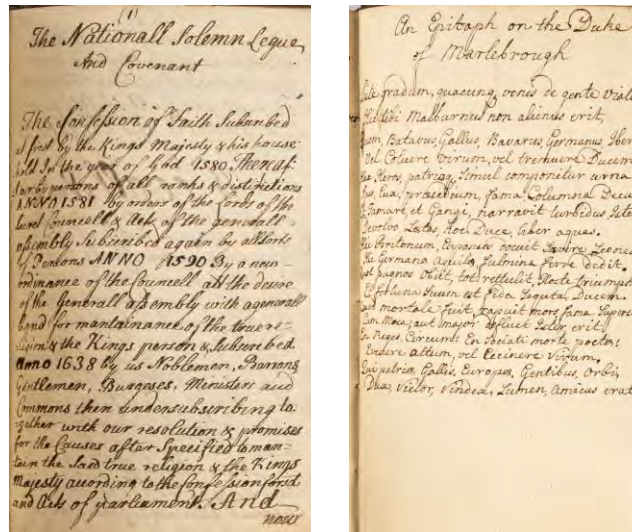 (1)
The Nationall Solemn Legue
And Covenant
The Confession of Faith Subscribed
at first by the Kings Majesty & his house
hold In the year of God 1580 Thereaf
ter by persons of all ranks & distinctions
ANNO 1581 by orders of the Lords of the
Councell & Acts of the generall
assembly Subscribed again by all sorts
of Persons ANNO 1590 By a new
ordinance of the Councell att the desire
of the Generall assembly with a generall
band for mantainance of the true re-
ligion & the Kings person & Subscribed
Anno 1638 by us Noblemen, Barrons
Gentlemen, Burgeses, Ministers and
Commons then undersubscribing to-
gether with our resolution & promises
for the Causes after Specified to man-
tain the said true religion & the Kings
Majesty according to the Confession forsd
and Acts of parliament. And
now
An Epitaph on the Duke
of Marlebrough
gradum, quacunq venis de gente
tibi Malburnus non alienus erit
Batavus, Gallus, Bavarus, Germanus
Vel Coluere Virum, vel Ducem
Heros, patriæ, Simul componitur urna
præsidium, fama, Columna
et Gange, narravit turbidus
Devolvo Lætas, hoc Duce, liber aquas.
Britonum, docuit Leones
Germana aquila fulmina ferre dedit.
pugnas obiit, tot rettulit Hoste triumph
fortuna Suum est fida Secuta Ducem.
mortale fuit, rapuit mors fama
aut major defluet erit
Reges, Circum: En Sociati morte poetæ:
altum, vel Cecinere Virum.
patriæ Gallis, Europæ, Gentibus, Orbi,
Dux, Victor, Vindex, Lumen, Amicus erat